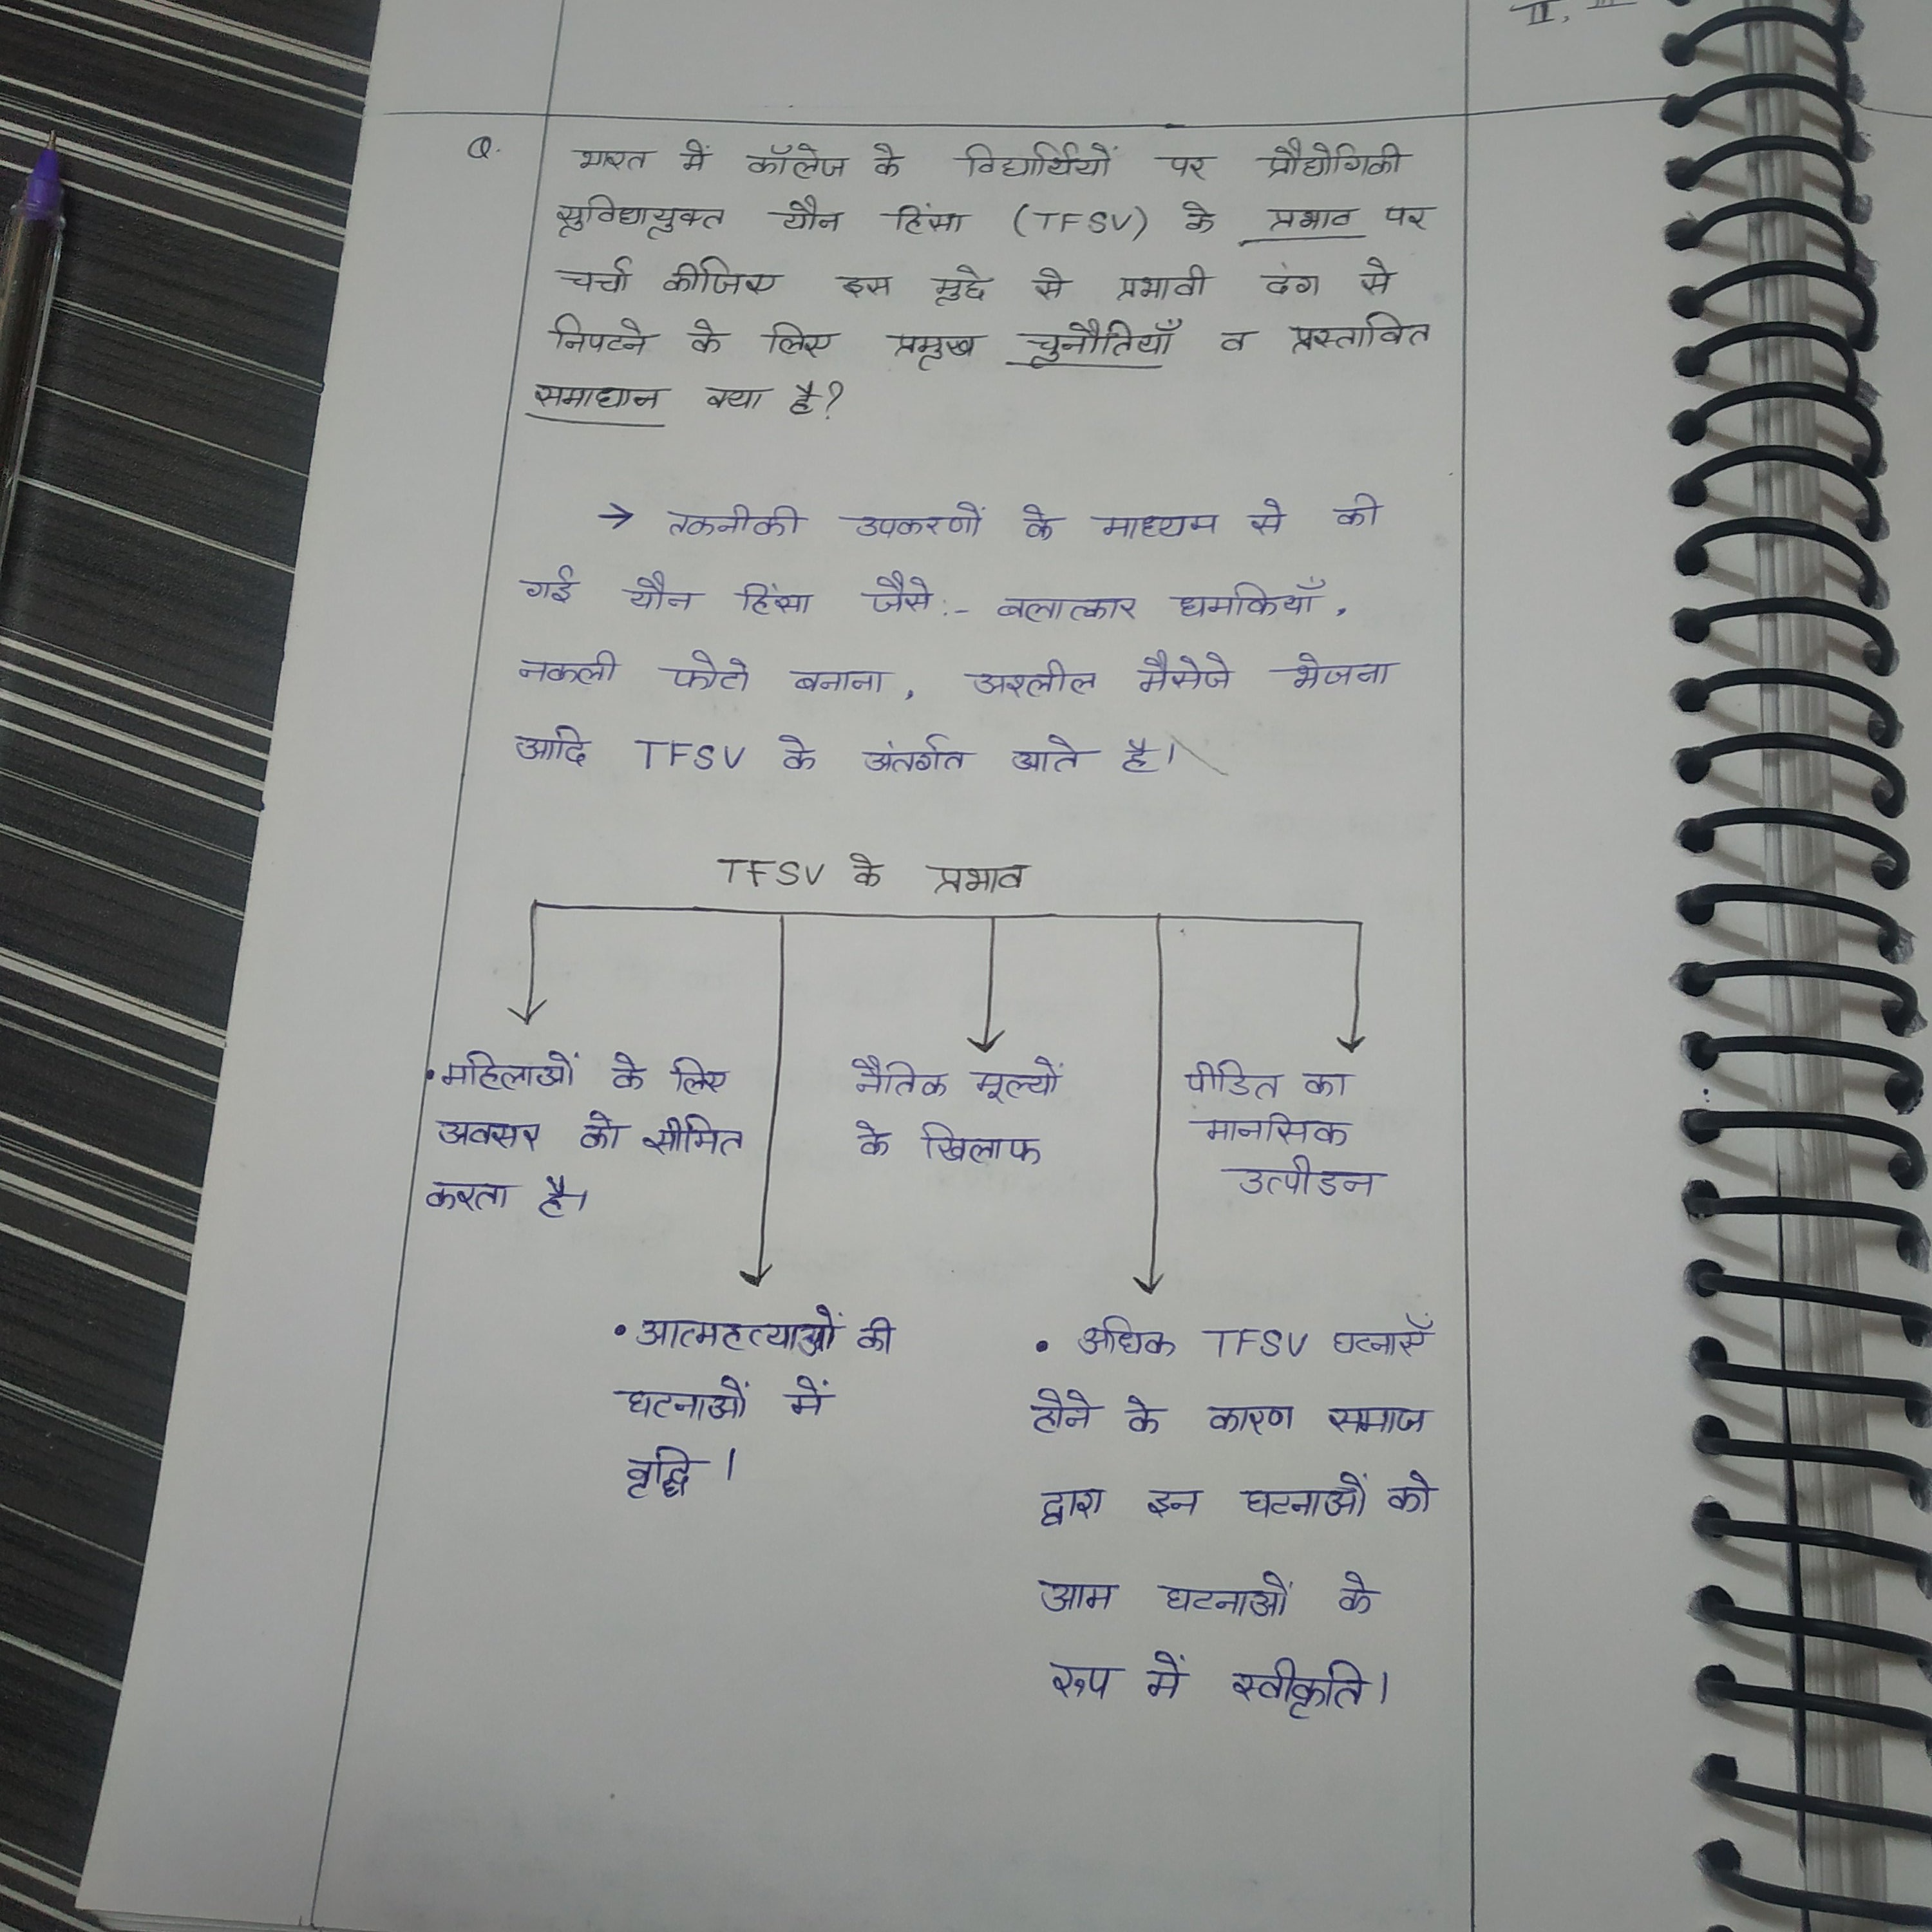 II, III
Q. भारत में कॉलेज के विद्यार्थियों पर प्रौद्योगिकी
सुविधायुक्त यौन हिंसा (TFSV) के प्रभाव पर
चर्चा कीजिए इस मुद्दे से प्रभावी ढंग से
निपटने के लिए प्रमुख चुनौतियाँ व प्रस्तावित
समाधान क्या है?
→ तकनीकी उपकरणों के माध्यम से की
गई यौन हिंसा जैसे:- बलात्कार धमकियाँ,
नकली फोटो बनाना, अश्लील मैसेजे भेजना
आदि TFSV के अंतर्गत आते है।
TFSV के प्रभाव
• महिलाओं के लिए
अवसर को सीमित
करता है।
• आत्महत्याओं की
घटनाओं में
वृद्धि।
नैतिक मूल्यों
के खिलाफ
• अधिक TFSV घटनाएँ
होने के कारण समाज
द्वारा इन घटनाओं को
आम घटनाओं के
रूप में स्वीकृति।
पीडित का
मानसिक
उत्पीडन